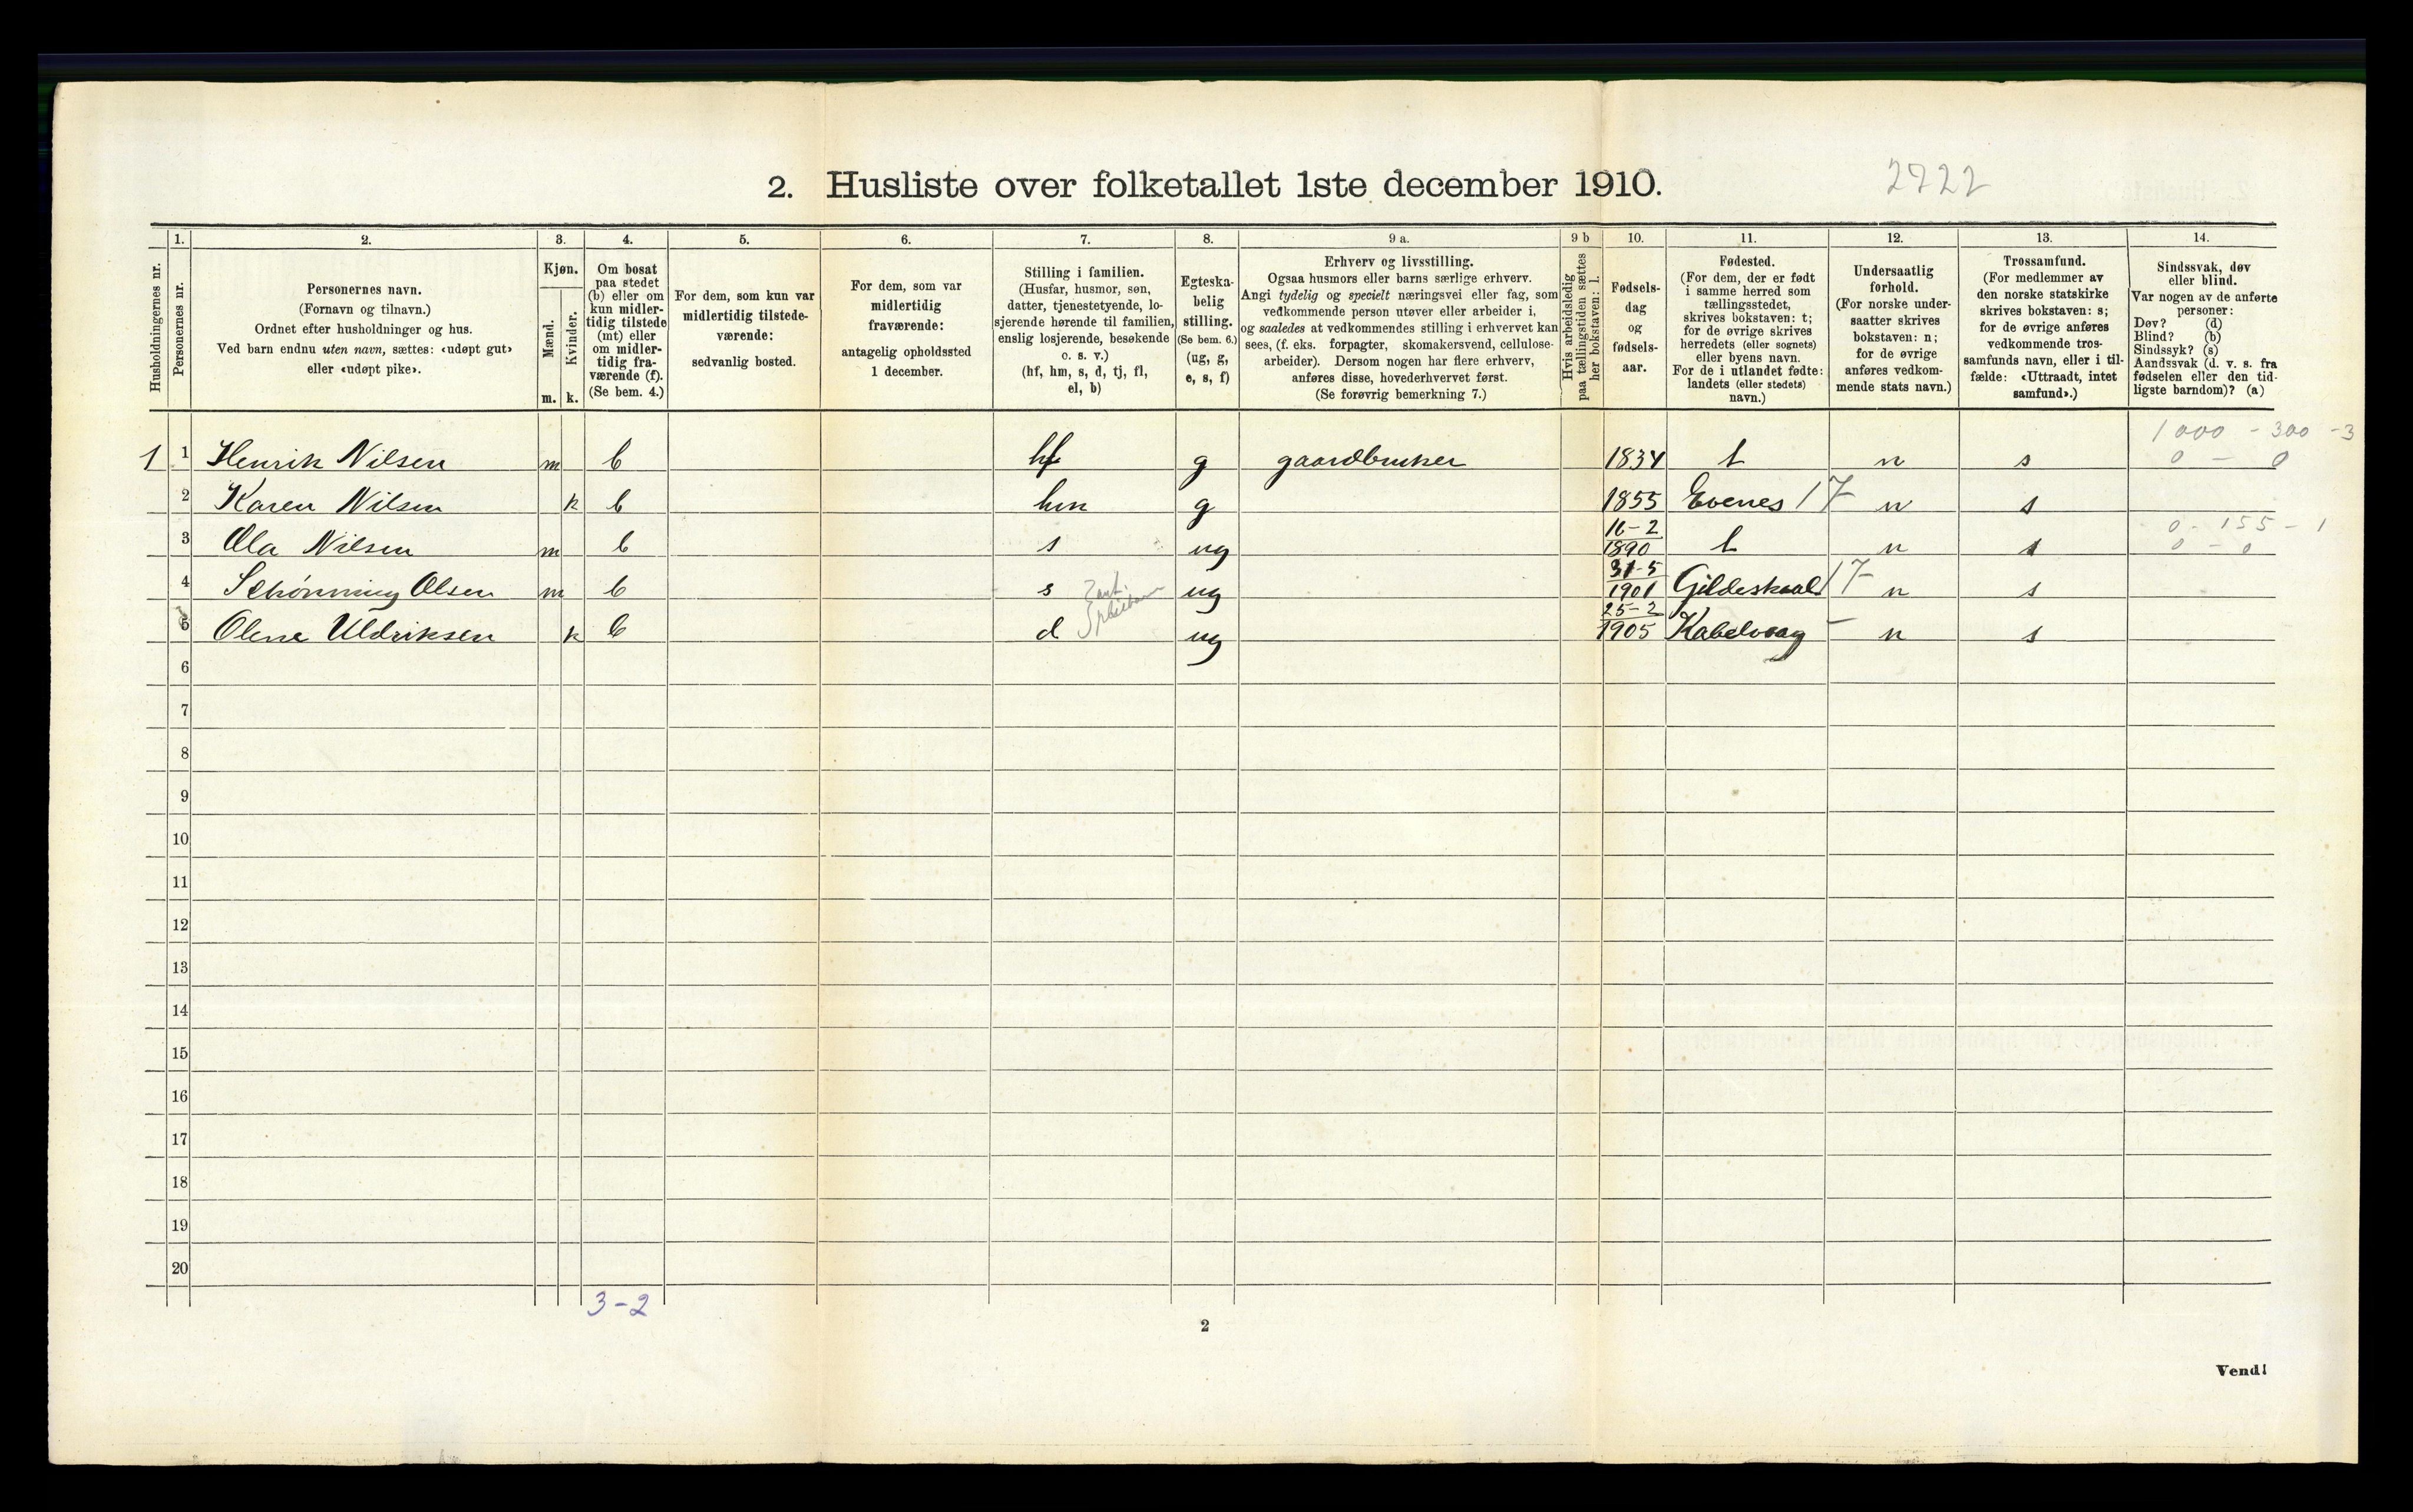 2. Husliste over folketallet 1ste december 1910.
2722
Husholdningernes nr.
1.
Personernes nr.
2.
Personernes navn.
(Fornavn og tilnavn.)
Ordnet efter husholdninger og hus.
Ved barn endnu uten navn, sættes: «udøpt gut»
eller «udøpt pike».
3.
Kjøn.
Mænd.
Kvinder.
m. k.
4.
Om bosat
paa stedet
(b) eller om
kun midler-
tidig tilstede
(mt) eller
om midler-
tidig fra-
værende (f).
(Se bem. 4.)
5.
For dem, som kun var
midlertidig tilstede-
værende:
sedvanlig bosted.
6.
For dem, som var
midlertidig
fraværende:
antagelig opholdssted
1 december.
7.
Stilling i familien.
(Husfar, husmor, søn,
datter, tjenestetyende, lo-
sjerende hørende til familien,
enslig losjerende, besøkende
o. s. v.)
(hf, hm, s, d, tj, fl,
el, b)
8.
Egteska-
belig
stilling.
(Se bem. 6.)
(ug, g,
e, s, f)
9 a.
Erhverv og livsstilling.
Ogsaa husmors eller barns særlige erhverv.
Angi tydelig og specielt næringsvei eller fag, som
vedkommende person utøver eller arbeider i,
og saaledes at vedkommendes stilling i erhvervet kan
sees, (f. eks. forpagter, skomakersvend, cellulose-
arbeider). Dersom nogen har flere erhverv,
anføres disse, hovederhvervet først.
(Se forøvrig bemerkning 7.)
9 b
Hvis arbeidsledig
paa tællingstiden sættes
her bokstaven: l.
10.
Fødsels-
dag
og
fødsels-
aar.
11.
Fødested.
(For dem, der er født
i samme herred som
tællingsstedet,
skrives bokstaven: t;
for de øvrige skrives
herredets (eller sognets)
eller byens navn.
For de i utlandet fødte:
landets (eller stedets)
navn.)
12.
Undersaatlig
forhold.
(For norske under-
saatter skrives
bokstaven: n;
for de øvrige
anføres vedkom-
mende stats navn.)
13.
Trossamfund.
(For medlemmer av
den norske statskirke
skrives bokstaven: s;
for de øvrige anføres
vedkommende tros-
samfunds navn, eller i til-
fælde: «Uttraadt, intet
samfund».)
14.
Sindssvak, døv
eller blind.
Var nogen av de anførte
personer:
Døv? (d)
Blind? (b)
Sindssyk? (s)
Aandssvak (d. v. s. fra
fødselen eller den tid-
ligste barndom)? (a)
1000 - 300 - 3
1 1 Henrik Nilsen m b hf g gaardbruker 1834 t n s 0 - 0
2 Karen Nilsen k b hm g 1855 Evenes 17 n s
16-2 0 - 155 - 1
3 Ola Nilsen m b s ug 1890 t n s 0 - 0
31-5
4 Schønning Olsen m b s ug 1901 Gildeskaal 17 n s
25-2
5 Olene Uldriksen k b d ug 1905 Kabelvaag - n s
6
7
8
9
10
11
12
13
14
15
16
17
18
19
20
3-2
2
Vend!